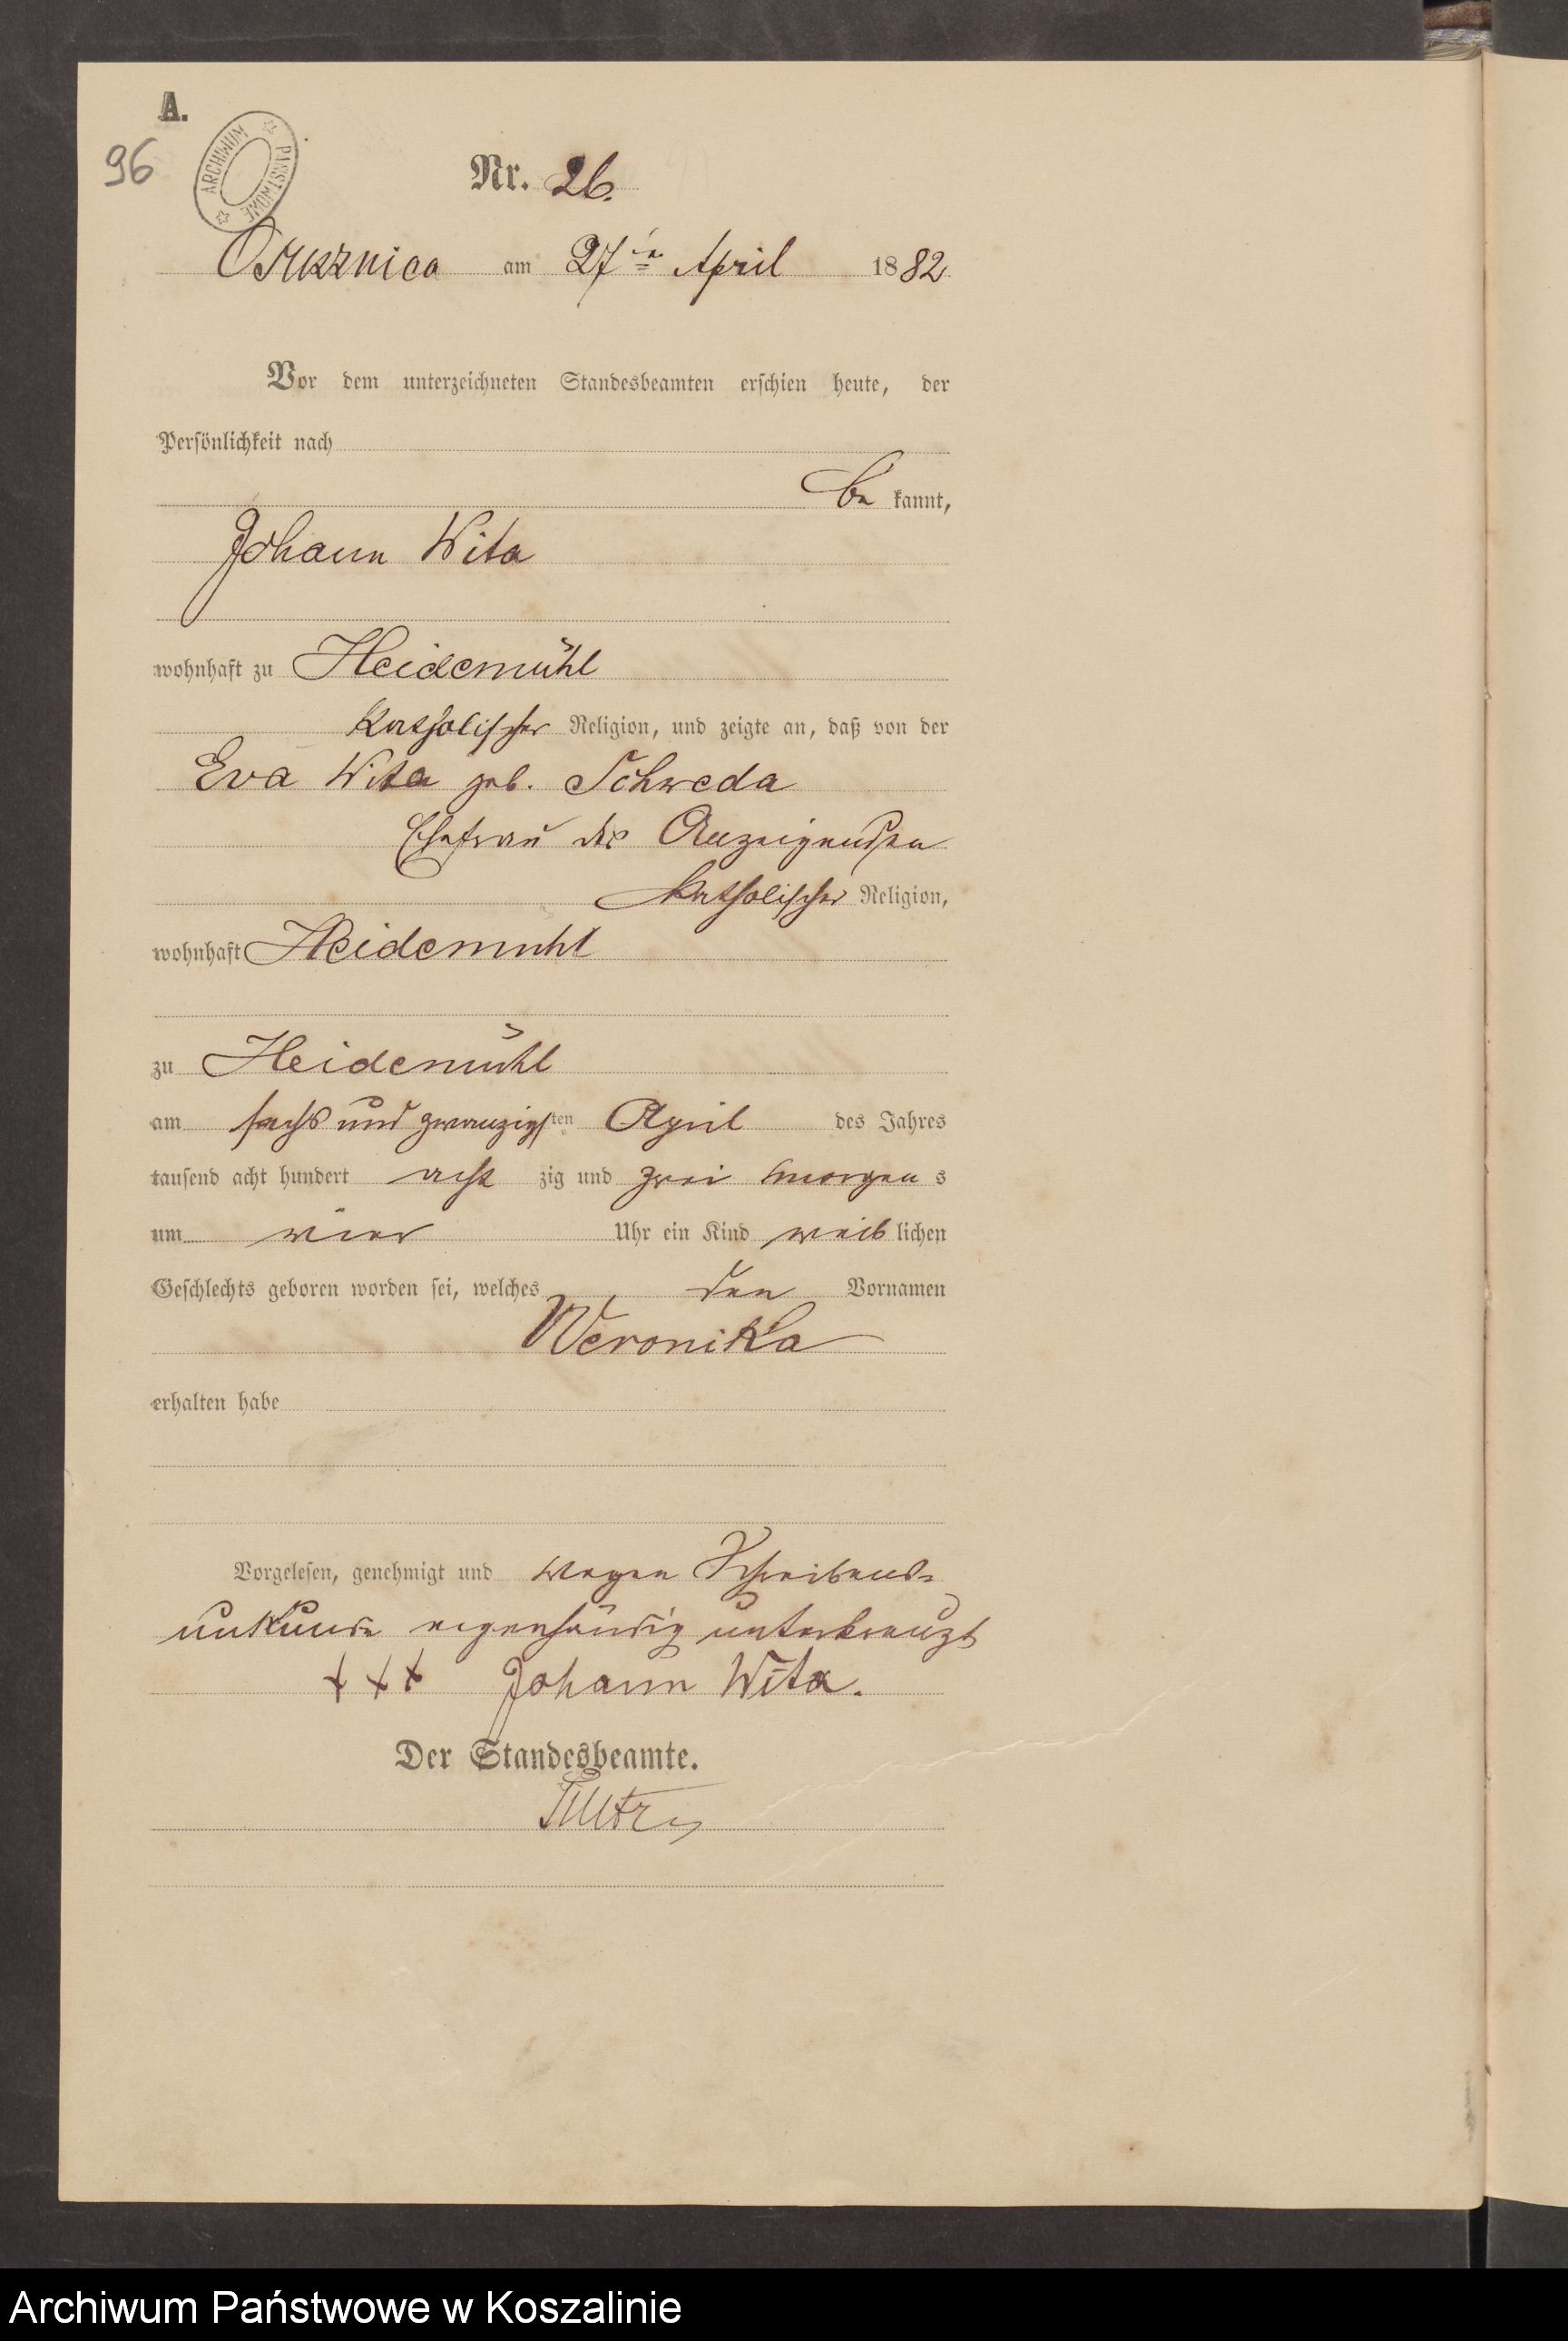 A.
96
ARCHIWUM PAŃSTWOWE
Nr. 26.
am 27ten April 1882
Vor dem unterzeichneten Standesbeamten erschien heute, der
Persönlichkeit nach
be kannt,
Johann Wita
wohnhaft zu Heidemühl
katholischer Religion, und zeigte an, daß von der
Eva Wita geb. Schweda
Ehefrau des Anzeigenden
katholischer Religion,
wohnhaft Heidemuhl
zu Heidemühl
am sechs und zwanzigsten April des Jahres
tausend acht hundert acht zig und zwei morgen s
um vier Uhr ein Kind weib lichen
Geschlechts geboren worden sei, welches den Vornamen
Weronika
erhalten habe
Vorgelesen, genehmigt und wegen Schreibens-
unkunde eigenhändig unterkreuzt
+++ Johann Wita.
Der Standesbeamte.
Archiwum Państwowe w Koszalinie